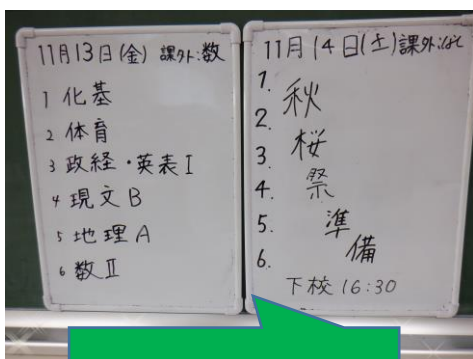 11月13日(金) 課外:数
1 化基
2 体育
3 政経・英表I
4 現文B
5 地理A
6 数II
11月14日(土)課外:なし
1.
2.
3.
4.
5.
6.
秋桜祭準備
下校 16:30